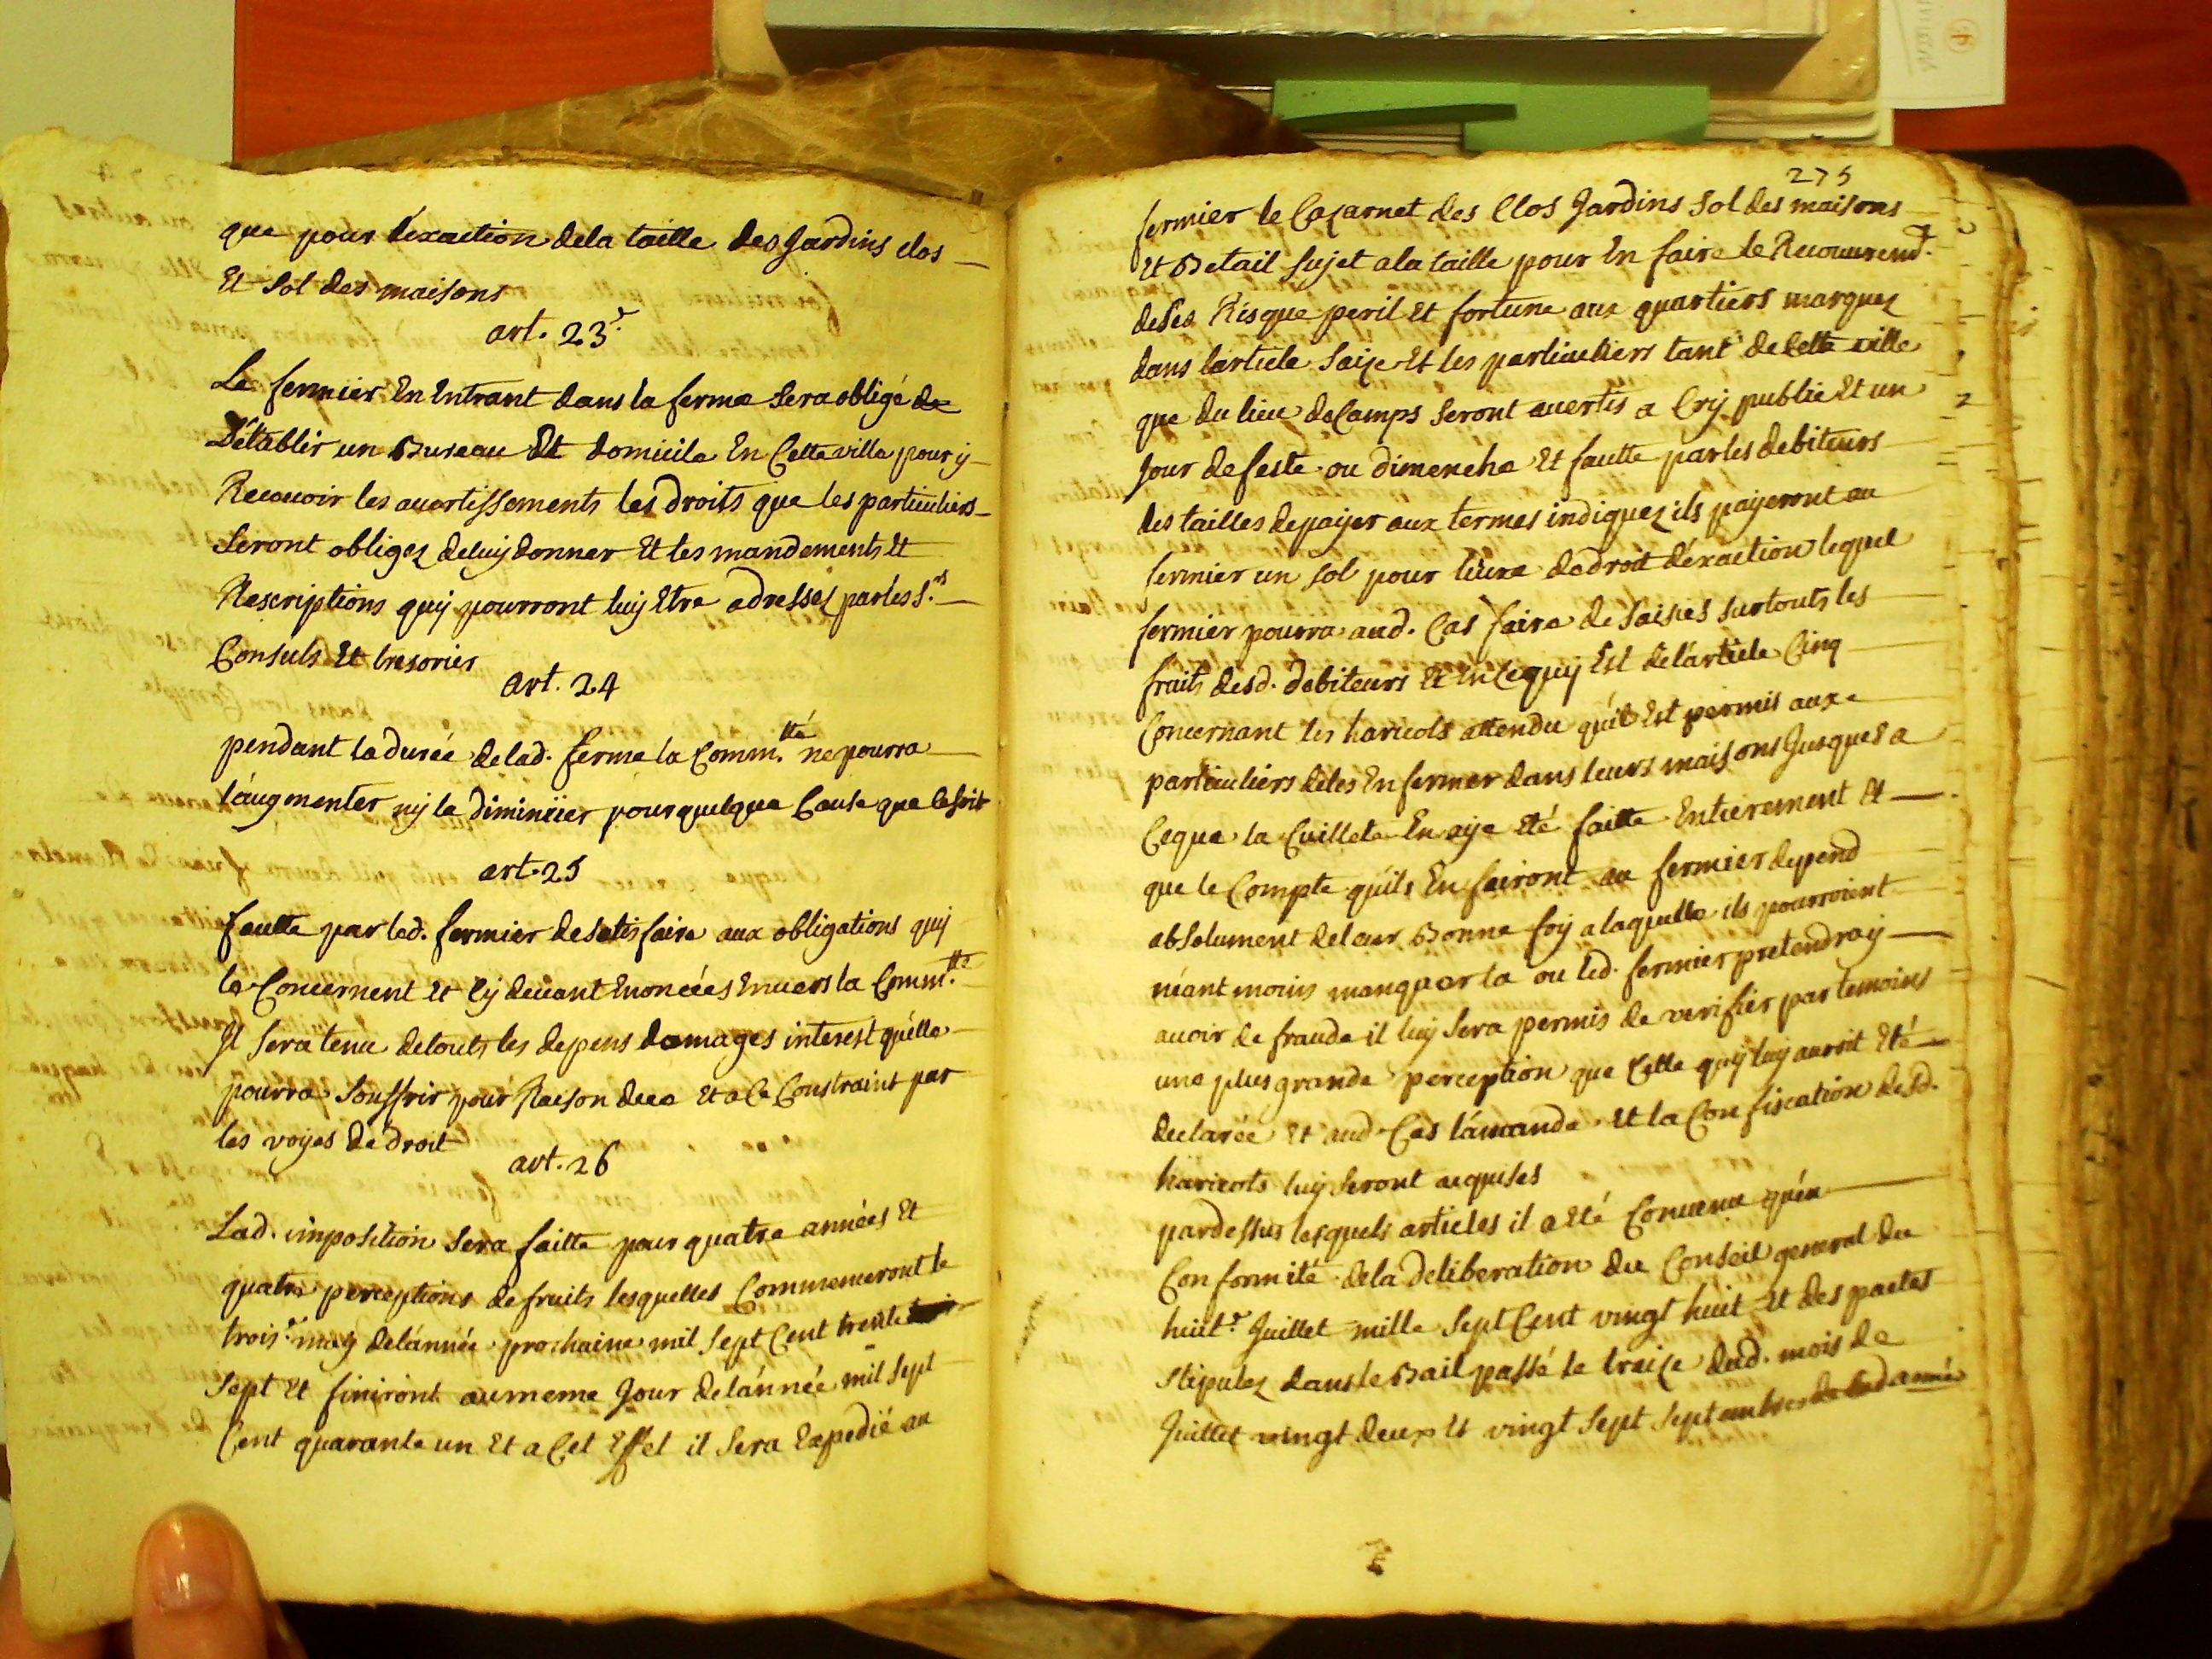 que pour l'exaction dela taille des Jardins clos
Et Sol des maisons
art. 23.e
Le fermier En Entrant dans la ferme Sera obligé de
D'établir un Bureau Et domicile En Cette ville pour y
Recevoir les avertissements les droits que les particuliers
Seront obligez deluy donner Et les mandements Et
Rescriptions quy pourront luy Etre adressez par les S.rs
Consuls Et tresories
art. 24
pendant la durée delad. ferme la Comm.tté ne pourra
l'augmenter ny la diminüer pour quelque Cause que ce soit
art. 25
fautte par led. fermier de satisfaire aux obligations quy
le Concernent Et Cy devant Enoncées Envers la Comm.tté
Il Sera tenu detouts les depens domages interest qu'elle
pourra Souffrir pour Raison dece Et a Ce Constraint par
les voyes de droit
art. 26
Lad. imposition Sera faitte pour quatre années Et
quatre perceptions de fruits lesquelles Commenceront le
trois.e may del'année prochaine mil Sept Cent trente
Sept Et finiront au meme Jour del'année mil Sept
Cent quarante un Et a Cet Effet il Sera Expedié au
275
fermier le Cazarnet des Clos Jardins Sol des maisons
Et Betail Sujet a la taille pour En faire le Recouvremt.
de Ses Risque peril Et fortune aux quartiers marquez
dans l'article Saize Et les particuliers tant de Cette ville
que du lieu de Camps Seront avertis a Cry public Et un
Jour de feste ou dimenche Et fautte par les debiteurs
des tailles de payer aux termes indiquez ils payeront au
fermier un Sol pour livre de droit d'exaction lequel
fermier pourra aud. Cas faire de Saisies Sur touts les
fruits desd. debiteurs Et En Ce quy Est de l'article Cinq
Concernant les haricots attendu qu'il Est permis aux
particuliers de les Enfermer dans leurs maisons Jusques a
Ceque la Cuillete En aije Eté faitte Entierement Et
que le Compte qu'ils En fairont au fermier depend
absolument deleur Bonne foy a laquelle ils pourroient
néantmoins manquer la ou led. fermier pretendroy
avoir de fraude il luy Sera permis de verifier par temoins
une plus grande perception que Celle quy luy auroit Eté
declarée Et aud. Cas l'amande Et la Confiscation desd.
haricots luy Seront acquises
pardessus lesquels articles il a Eté Convenu qu'en
Conformité dela deliberation du Conseil general du
huit.e Juillet mille Sept Cent vingt huit Et des pactes
Stipulez dans le Bail passé le traize dud. mois de
Juillet vingt deux Et vingt Sept Septembres de lad année